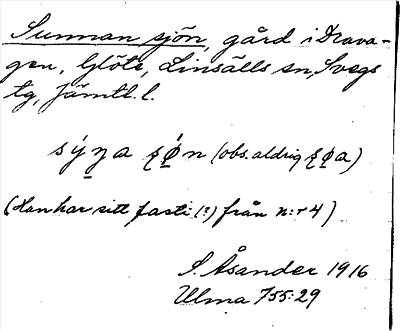 Sunnan sjön, gård i Drava-
gen, Glöte, Linsälls sn, Svegs
tg, Jämtl. l.
(obs. aldrig
(Han har sitt fasti (?) från n:r 4)
S. Åsander 1916
Ulma 755:29